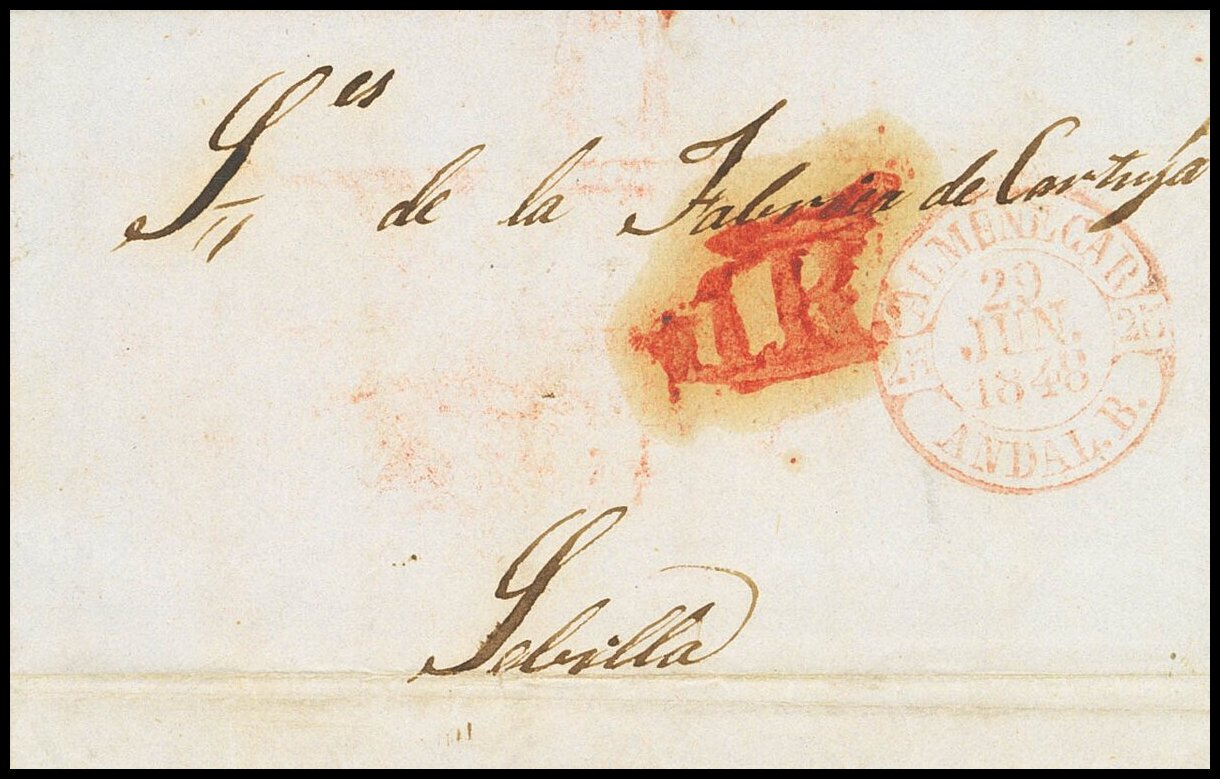 Sres de la Fabrica de Cartuja
1R
ALMUNECAR
29
JUN.
1848
ANDAL. B.
Sebilla